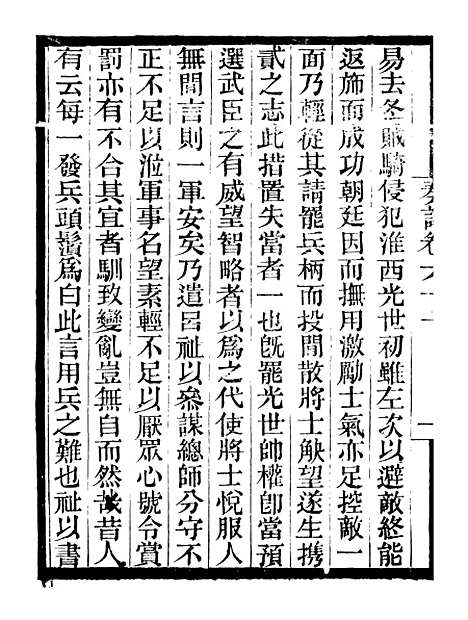 易去冬賊騎侵犯淮西光世初雖左次以避敵終能
返施而成功朝廷因而撫用激勵士氣亦足控敵一
面乃輕從其請罷兵柄而投閒散將士觖望遂生攜
貳之志此措置失當者一也旣罷光世帥權卽當預
選武臣之有威望智略者以爲之代使將士悅服人
無閒言則一軍安矣乃遣呂祉以參謀總師分守不
正不足以涖軍事名望素輕不足以厭眾心號令賞
罰亦有不合其宜者馴致變亂豈無自而然哉昔人
有云每一發兵頭鬚爲白此言用兵之難也祉以書